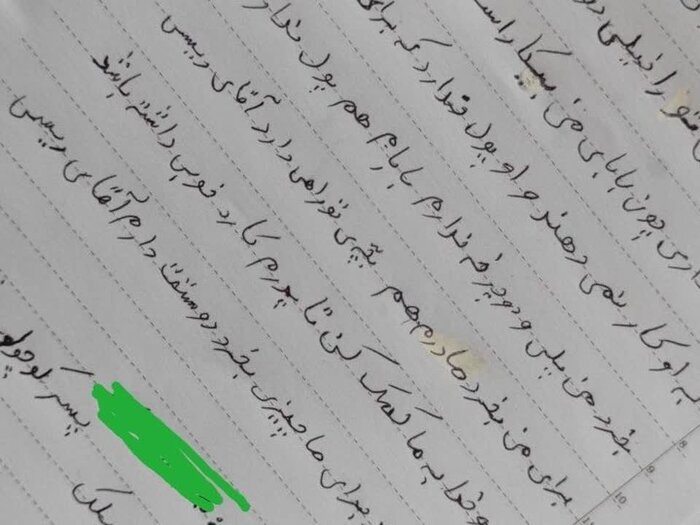 را خیلی دو
ری چون بابای من بیکار است
به او کار نمی دهند و او پول ندارد که برای
بخرد من پلی و دوچرخه ندارم بابام هم پول ندار
برای من بخرد مادرم هم بچه ی تو راهی دارد آقای رییسی
تو خدا به ما کمک کن تا پدرم کار خوبی داشته باشد
برای ما چیزی بخرد دوستت دارم آقای رییسی
پسر کوچولو